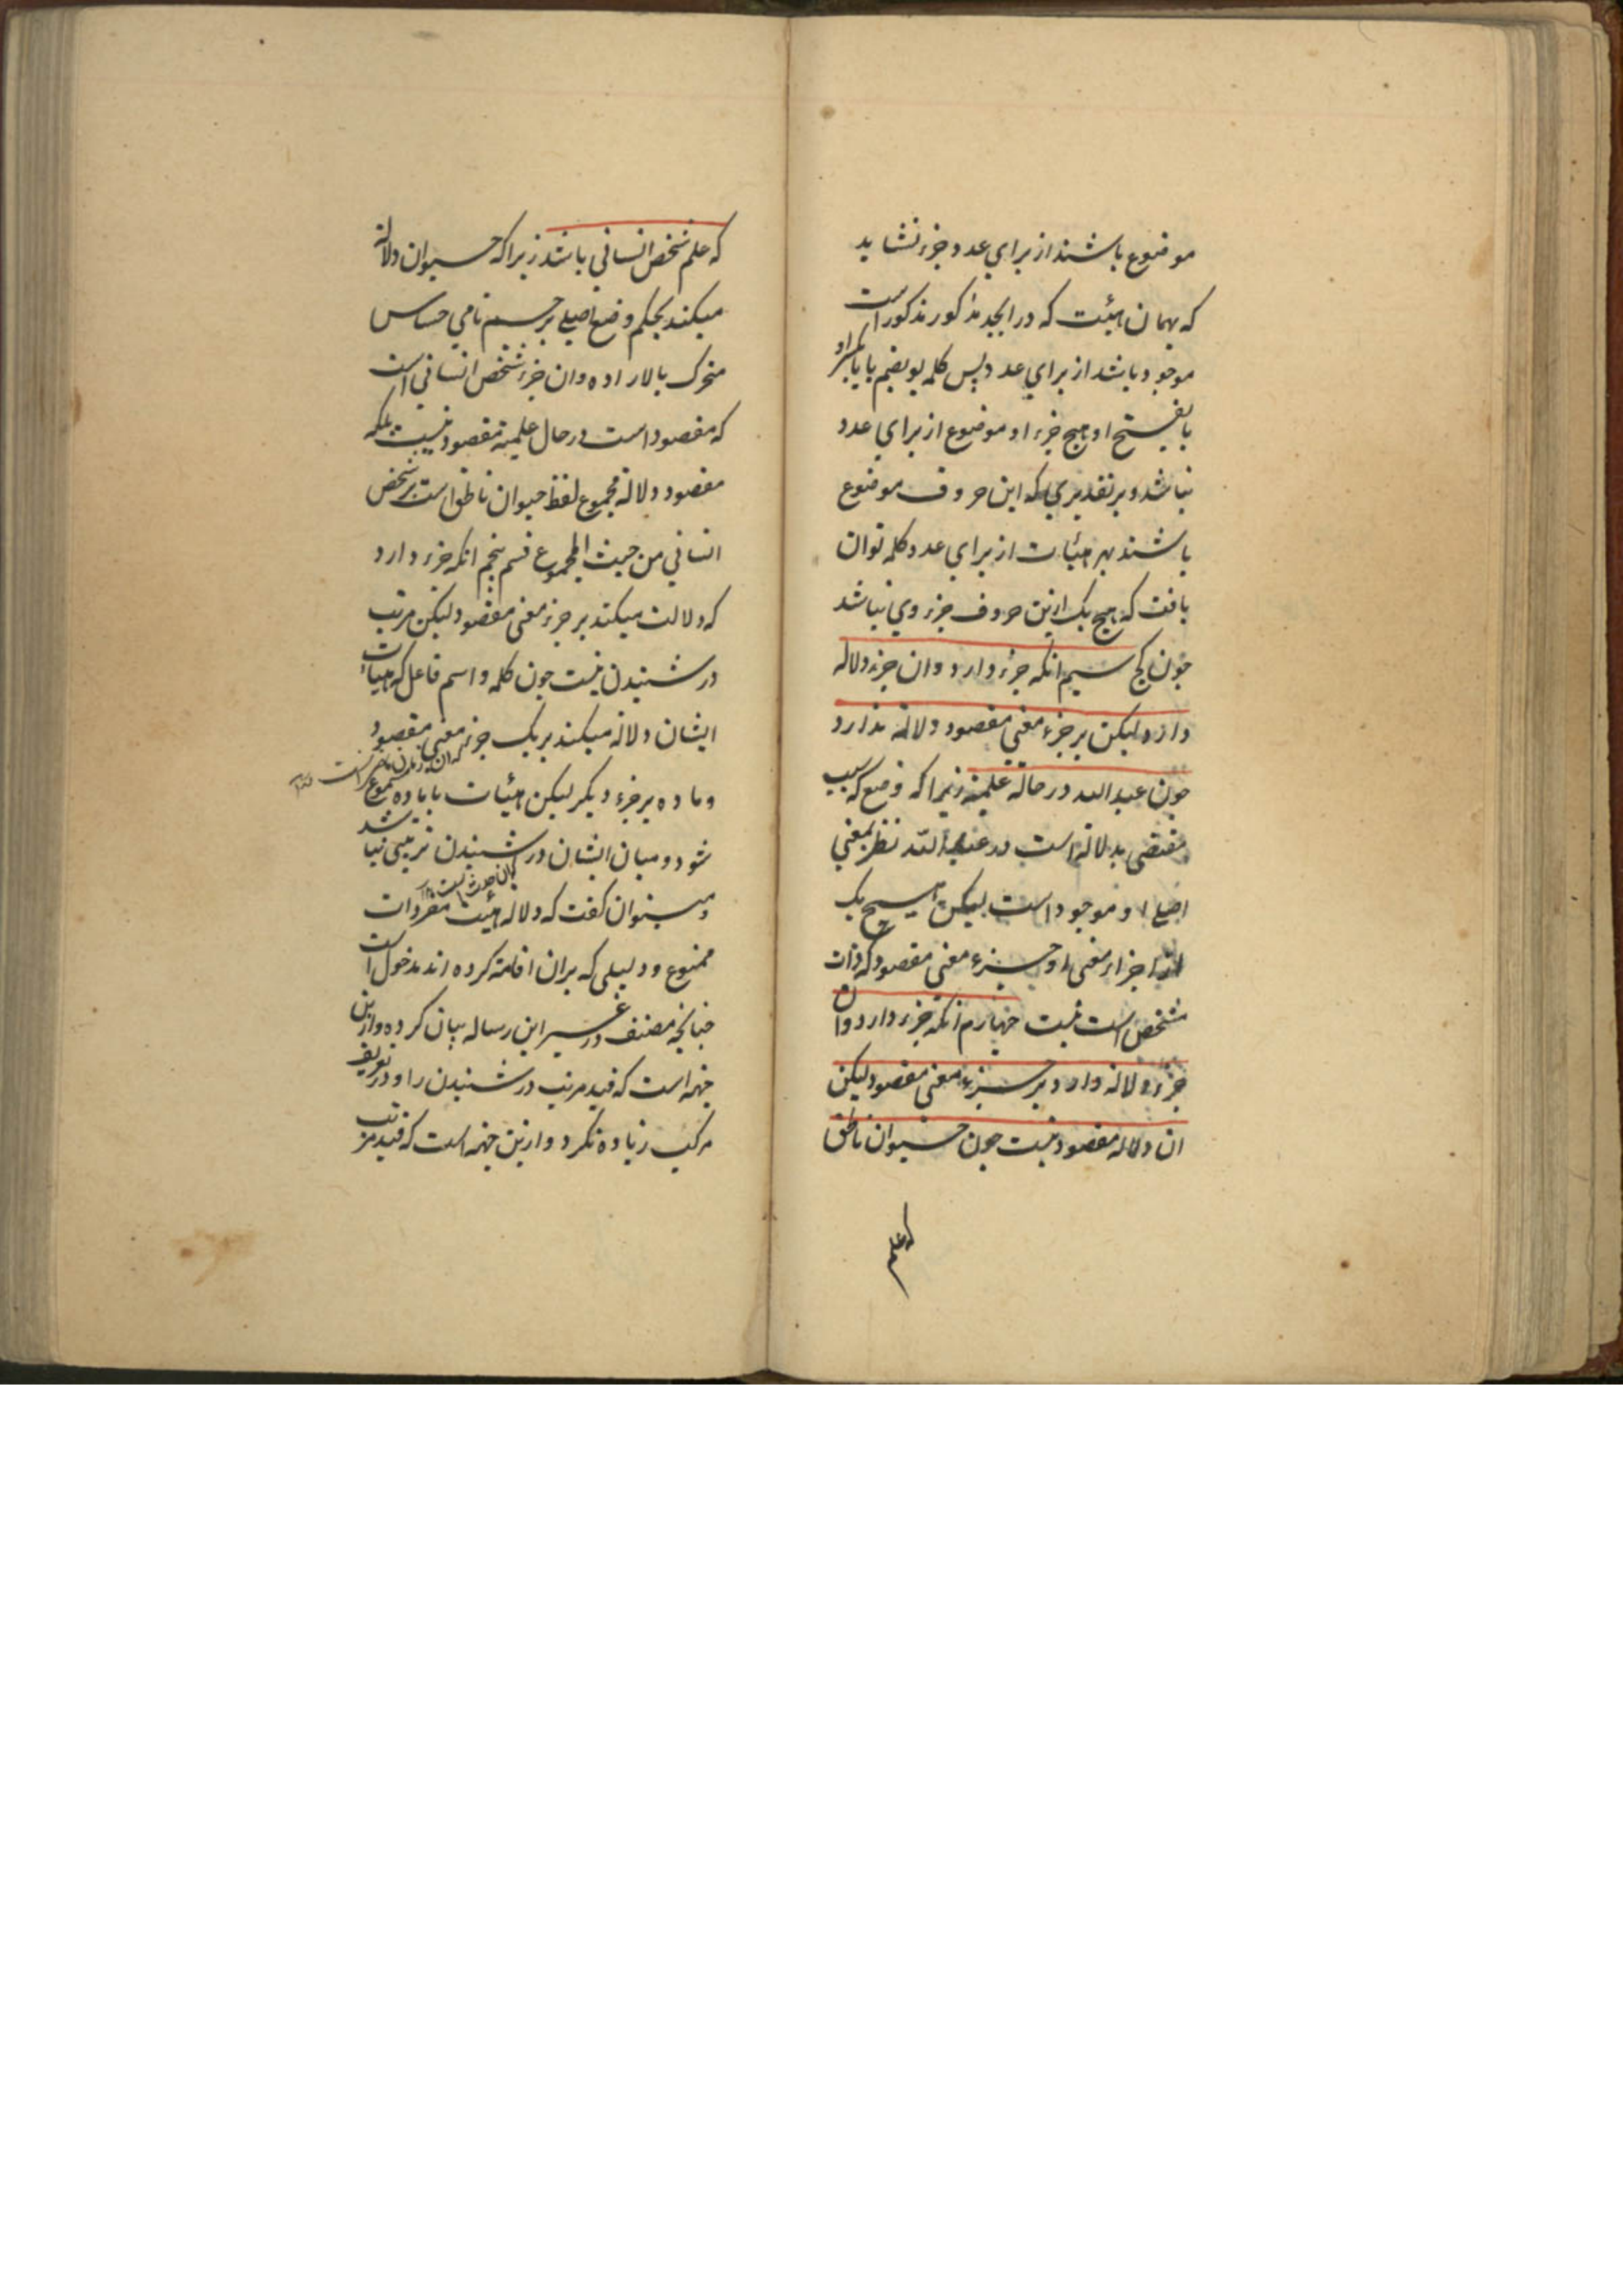 موضوع باشند از براي عدد جزء نشايد
که بهمان هيئت که در ابجد مذکور مذکور است
موجود باشد از براي عدد پس کلمه بو بضم با يا بکسر او
يا بفتح او هيچ جزء او موضوع از براي عدد
نباشد و بر تقديري که اين حروف موضوع
باشند بهر هيئات از براي عدد کلمه توان
يافت که هيچ يک ازين حروف جزء وي نباشد
چون کج سيم انکه جزء دارد و ان جزء دلالة
دارد ليکن بر جزء معني مقصود دلالة ندارد
چون عبد الله در حالة علمية زيرا که وضع که سبب
مقتضي بدلالة است در عبد الله نظر بمعني
اصلي او موجود است ليکن هيچ يک
از اجزاء معني او جزء معني مقصود که ذات
مشخص است نيست چهارم انکه جزء دارد و ان
جزء دلالة دارد بر جزء معني مقصود ليکن
ان دلالة مقصود نيست چون حيوان ناطق
که علم
که علم شخص انساني باشد زيرا که حيوان دلالة
ميکند بحکم وضع اصلي بر جسم نامي حساس
متحرک بالاراده و ان جزء شخص انساني است
که مقصود است در حال علمية مقصود نيست بلکه
مقصود دلالة مجموع لفظ حيوان ناطق است بر شخص
انساني من حيث المجموع قسم پنجم انکه جزء دارد
که دلالت ميکند بر جزء معني مقصود ليکن مرتب
در شنيدن نيست چون کلمه و اسم فاعل که هيات
ايشان دلالة ميکند بر يک جزء معني مقصود
که ان زمان است
و ماده بر جزء ديکر ليکن هيئات با ماده مسموع
شود و ميان ايشان در شنيدن ترتيبي نباشد
و ميتوان کفت که دلالة هيئت مفردات
ممنوع و دليلي که بران اقامة کرده اند مدخول است
چنانچه مصنف در غير اين رساله بيان کرده و ازين
جهة است که قيد مرتب در شنيدن را و در تعريف
مرکب زياده نکرد و ازين جهة است که قيد مرتب